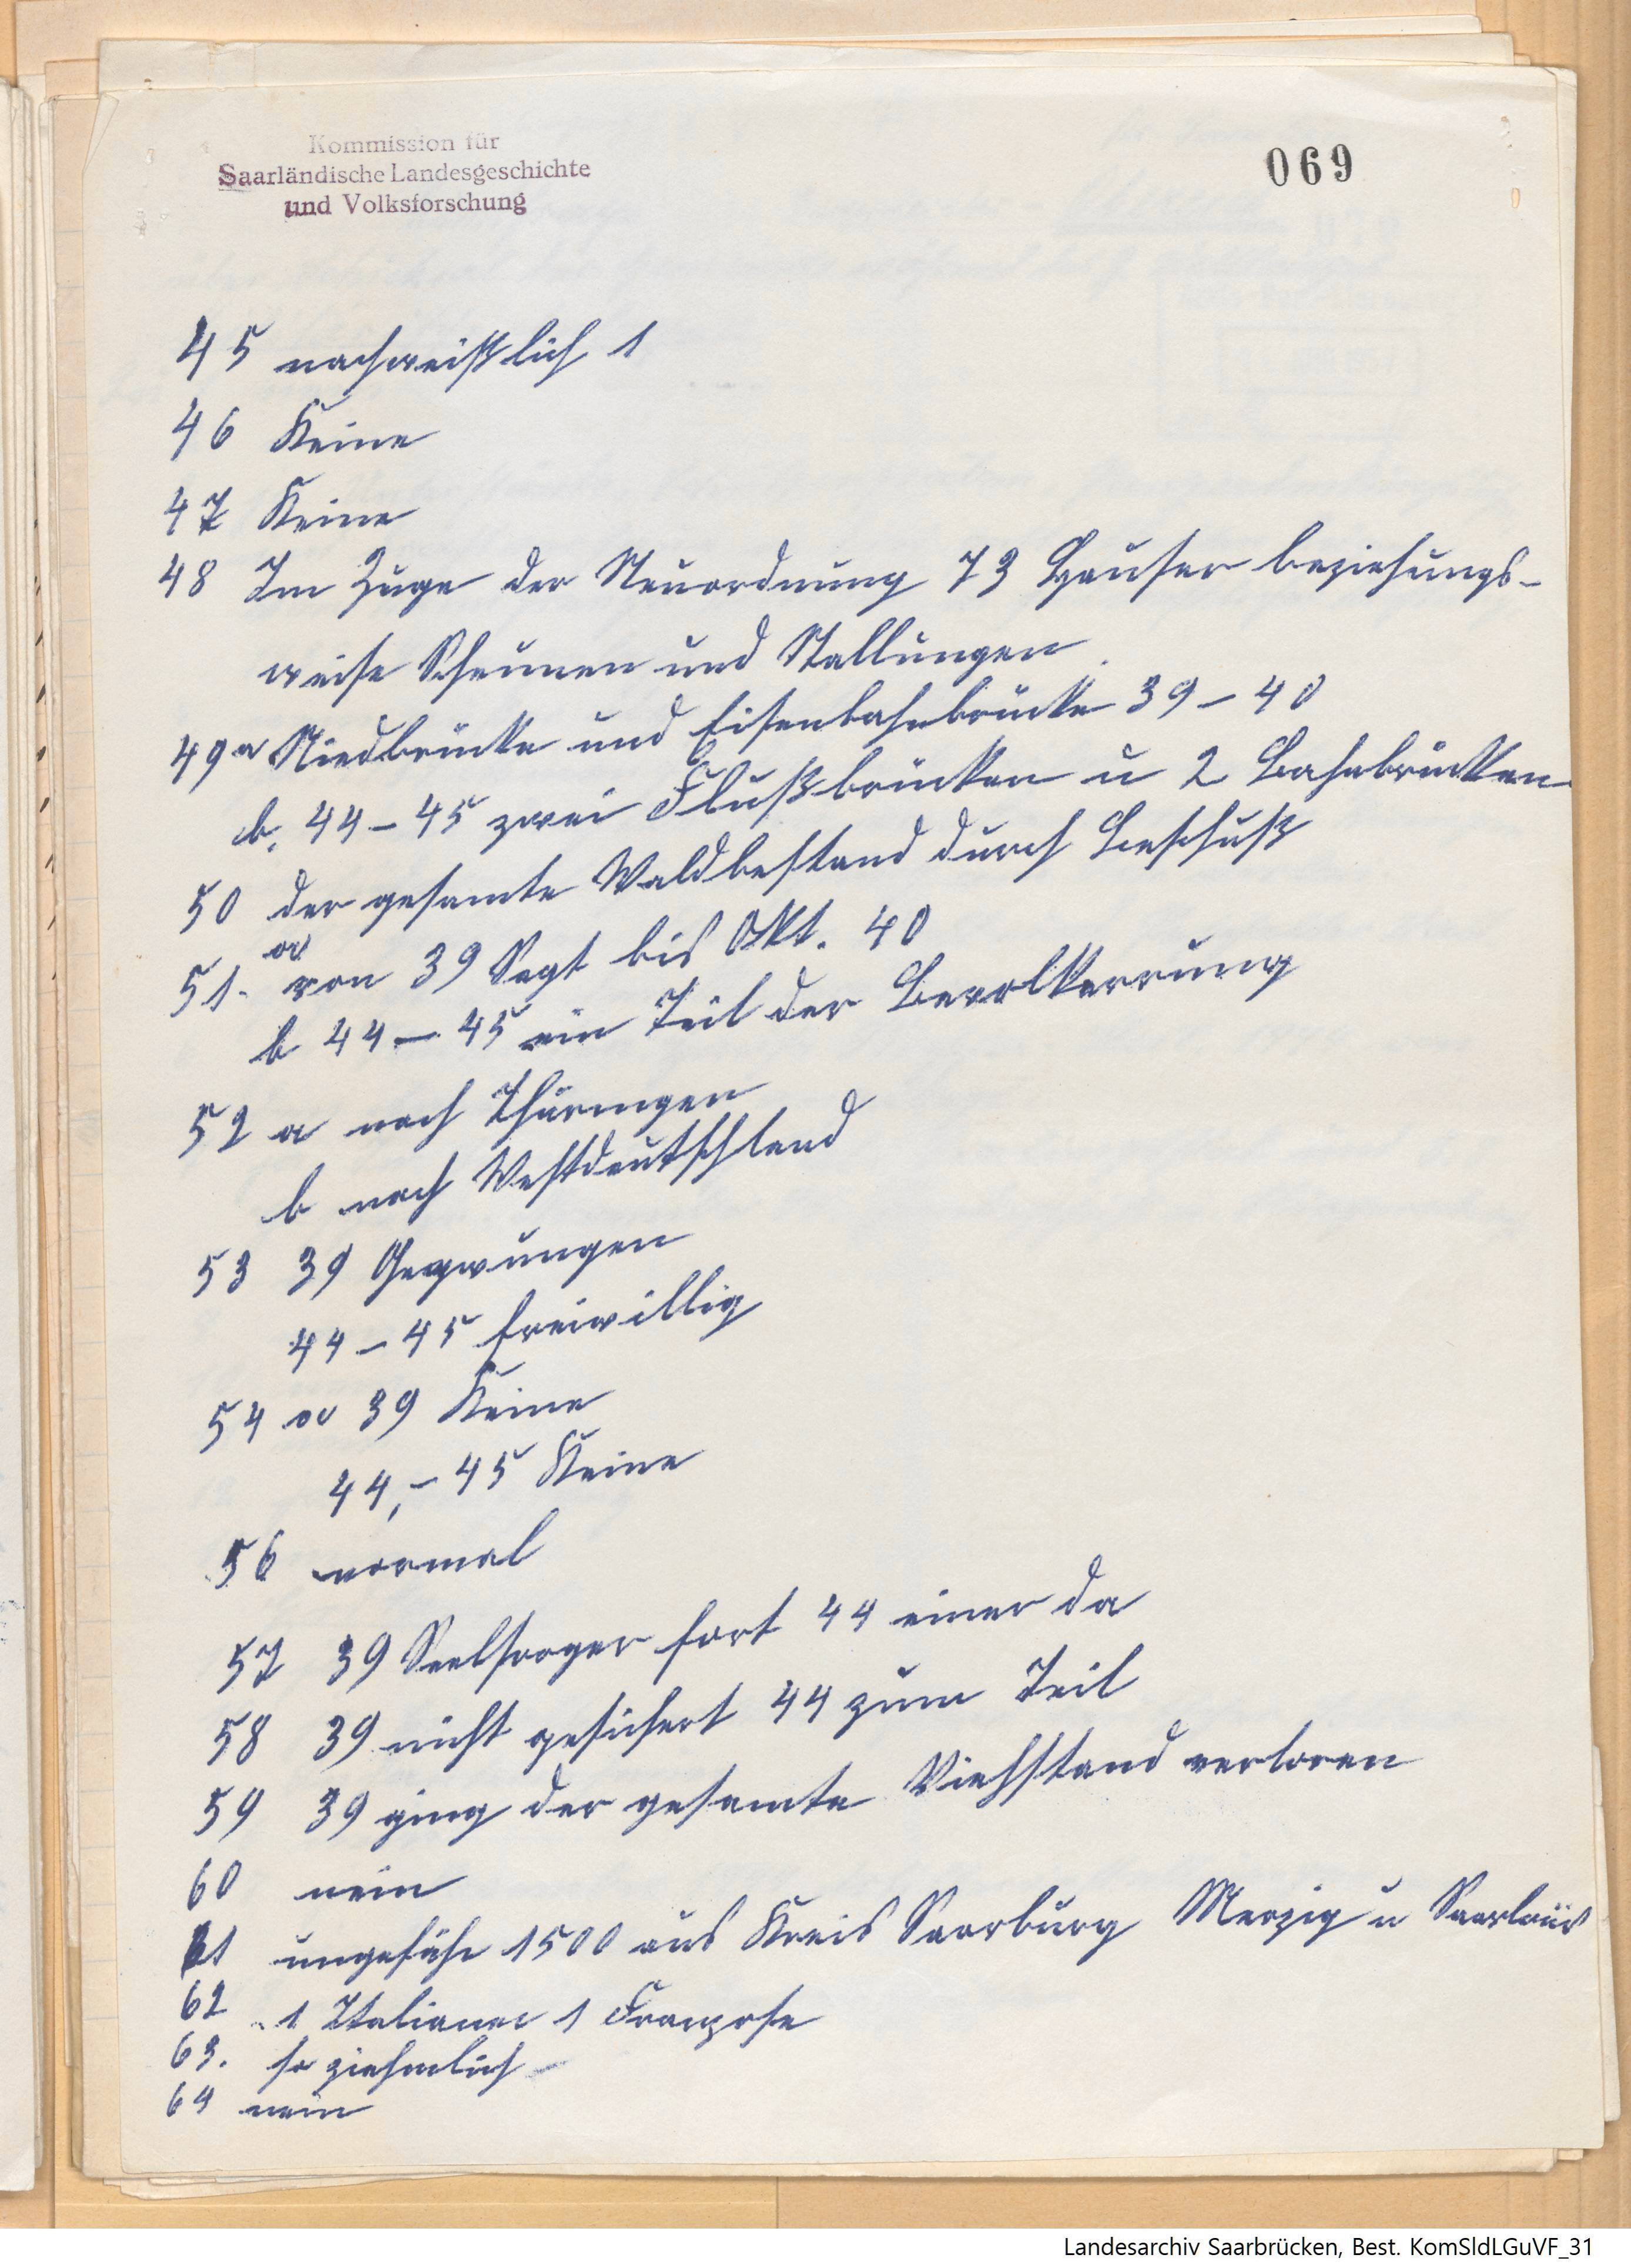 Kommission für
Saarländische Landesgeschichte
und Volksforschung
069
45 nachweißlich 1
46 Keine
47 Keine
48 Im Zuge der Neuordnung 73 Häuser beziehungs-
weise Scheunen und Stallungen
49 a Niedbrücke und Eisenbahnbrücke 39 – 40
b. 44 – 45 zwei Flußbrücken u 2 Bahnbrücken
50 der gesamte Waldbestand durch Beschuß
51. a von 39 Sept bis Okt. 40
b 44 – 45 ein Teil der Bevolkerrung
52 a nach Thüringen
b nach Westdeutschland
53 39 Gezwungen
44 – 45 freiwillig
54 a 39 Keine
44, – 45 Keine
56 normal
57 39 Seelsorger fort 44 einer da
58 39 nicht gesichert 44 zum Teil
59 39 ging der gesamte Viehstand verloren
60 nein
61 ungefähr 1500 aus Kreis Saarburg Merzig u Saarlouis
62 1 Italiener 1 Franzose
63. so ziehmlich
64 nein
Landesarchiv Saarbrücken, Best. KomSldLGuVF_31